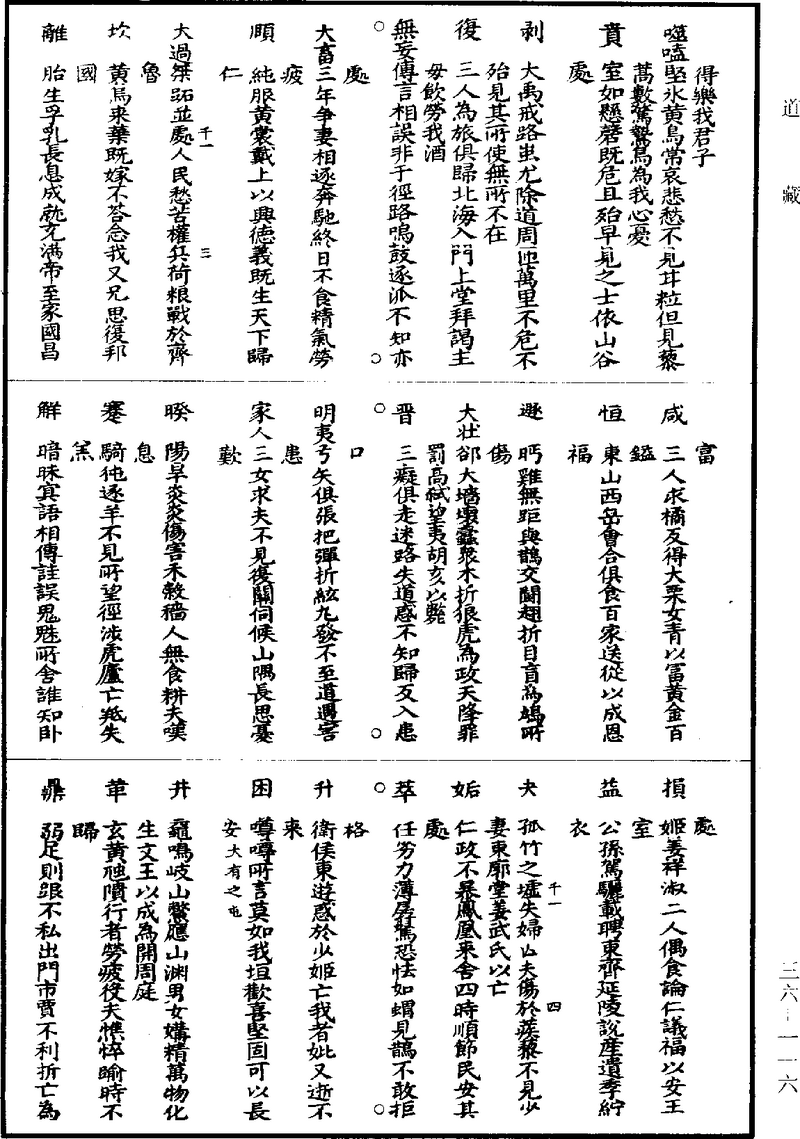 道藏
得樂我君子
噬嗑堅冰黃鳥常哀悲愁不見甘粒但見藜
蒿數驚鷙鳥為我心憂
賁　室如懸磬既危且殆早見之士依山谷
處
剝　大禹戒路蚩尤除道周匝萬里不危不
殆見其所使無所不在
復　三人為旅俱歸北海入門上堂拜謁主
母飲勞我酒
無妄傳言相誤非于徑路鳴鼓逐狐不知亦
處
大畜三年爭妻相逐奔馳終日不食精氣勞
疲
頤　純服黃裳戴上以興德義既生天下歸
仁
千一　三
大過桀跖並處人民愁苦權兵荷粮戰於齊
魯
坎　黃鳥來葉既嫁不答念我又兄思復邦
國
離　胎生孚乳長息成就充滿帝至家國昌
富
咸　三人求橘反得大栗女青以富黃金百
鎰
恒　東山西岳會合俱食百家送從以成恩
福
遯　眄雞無距與鵲交鬭翅折目盲為鳩所
傷
大壯郤大墻壞蠹眾木折狼虎為政天降罪
罰高弒望夷胡亥以斃
晉　三癡俱走迷路失道惑不知歸反入患
口
明夷弓矢俱張把彈折絃丸發不至道遇害
患
家人三女求夫不見復關伺候山隅長思憂
歎
睽　陽旱炎炎傷害禾穀穡人無食耕夫嘆
息
蹇　騎㹠逐羊不見所望徑涉虎廬亡羝失
羔
解　暗昧冥語相傳詿誤鬼魅所舍誰知卧
處
損　姬姜祥淑二人偶食論仁議福以安王
室
益　公孫駕驪載聘東齊延陵說產遺季紵
衣
千一　四
夬　孤竹之墟失婦亡夫傷於蒺藜不見少
妻東郭堂姜武氏以亡
姤　仁政不暴鳳凰來舍四時順節民安其
處
萃　任劣力薄孱駑恐怯如蝟見鵲不敢拒
格
升　衛侯東遊惑於少姬亡我考妣又逝不
來
困　噂噂所言莫如我垣歡喜堅固可以長
安大有之屯
井　黿鳴岐山鱉應山淵男女媾精萬物化
生文王以成為開周庭
革　玄黃虺隤行者勞疲役夫憔悴踰時不
歸
鼎　弱足刖跟不私出門市賈不利折亡為
三六－一一六